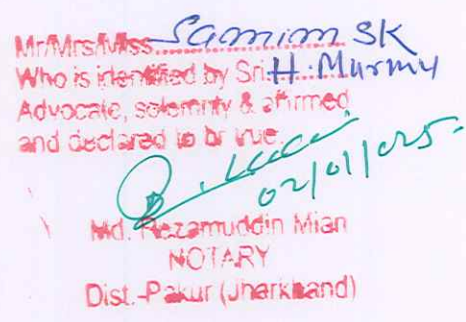 Mr/Mrs/Miss........Samim SK
Who is identified by Sri. H. Murmu
Advocate, solemnity & affirmed
and declared to br true.
02/01/025
Md. Rezamuddin Mian
NOTARY
Dist.-Pakur (Jharkhand)